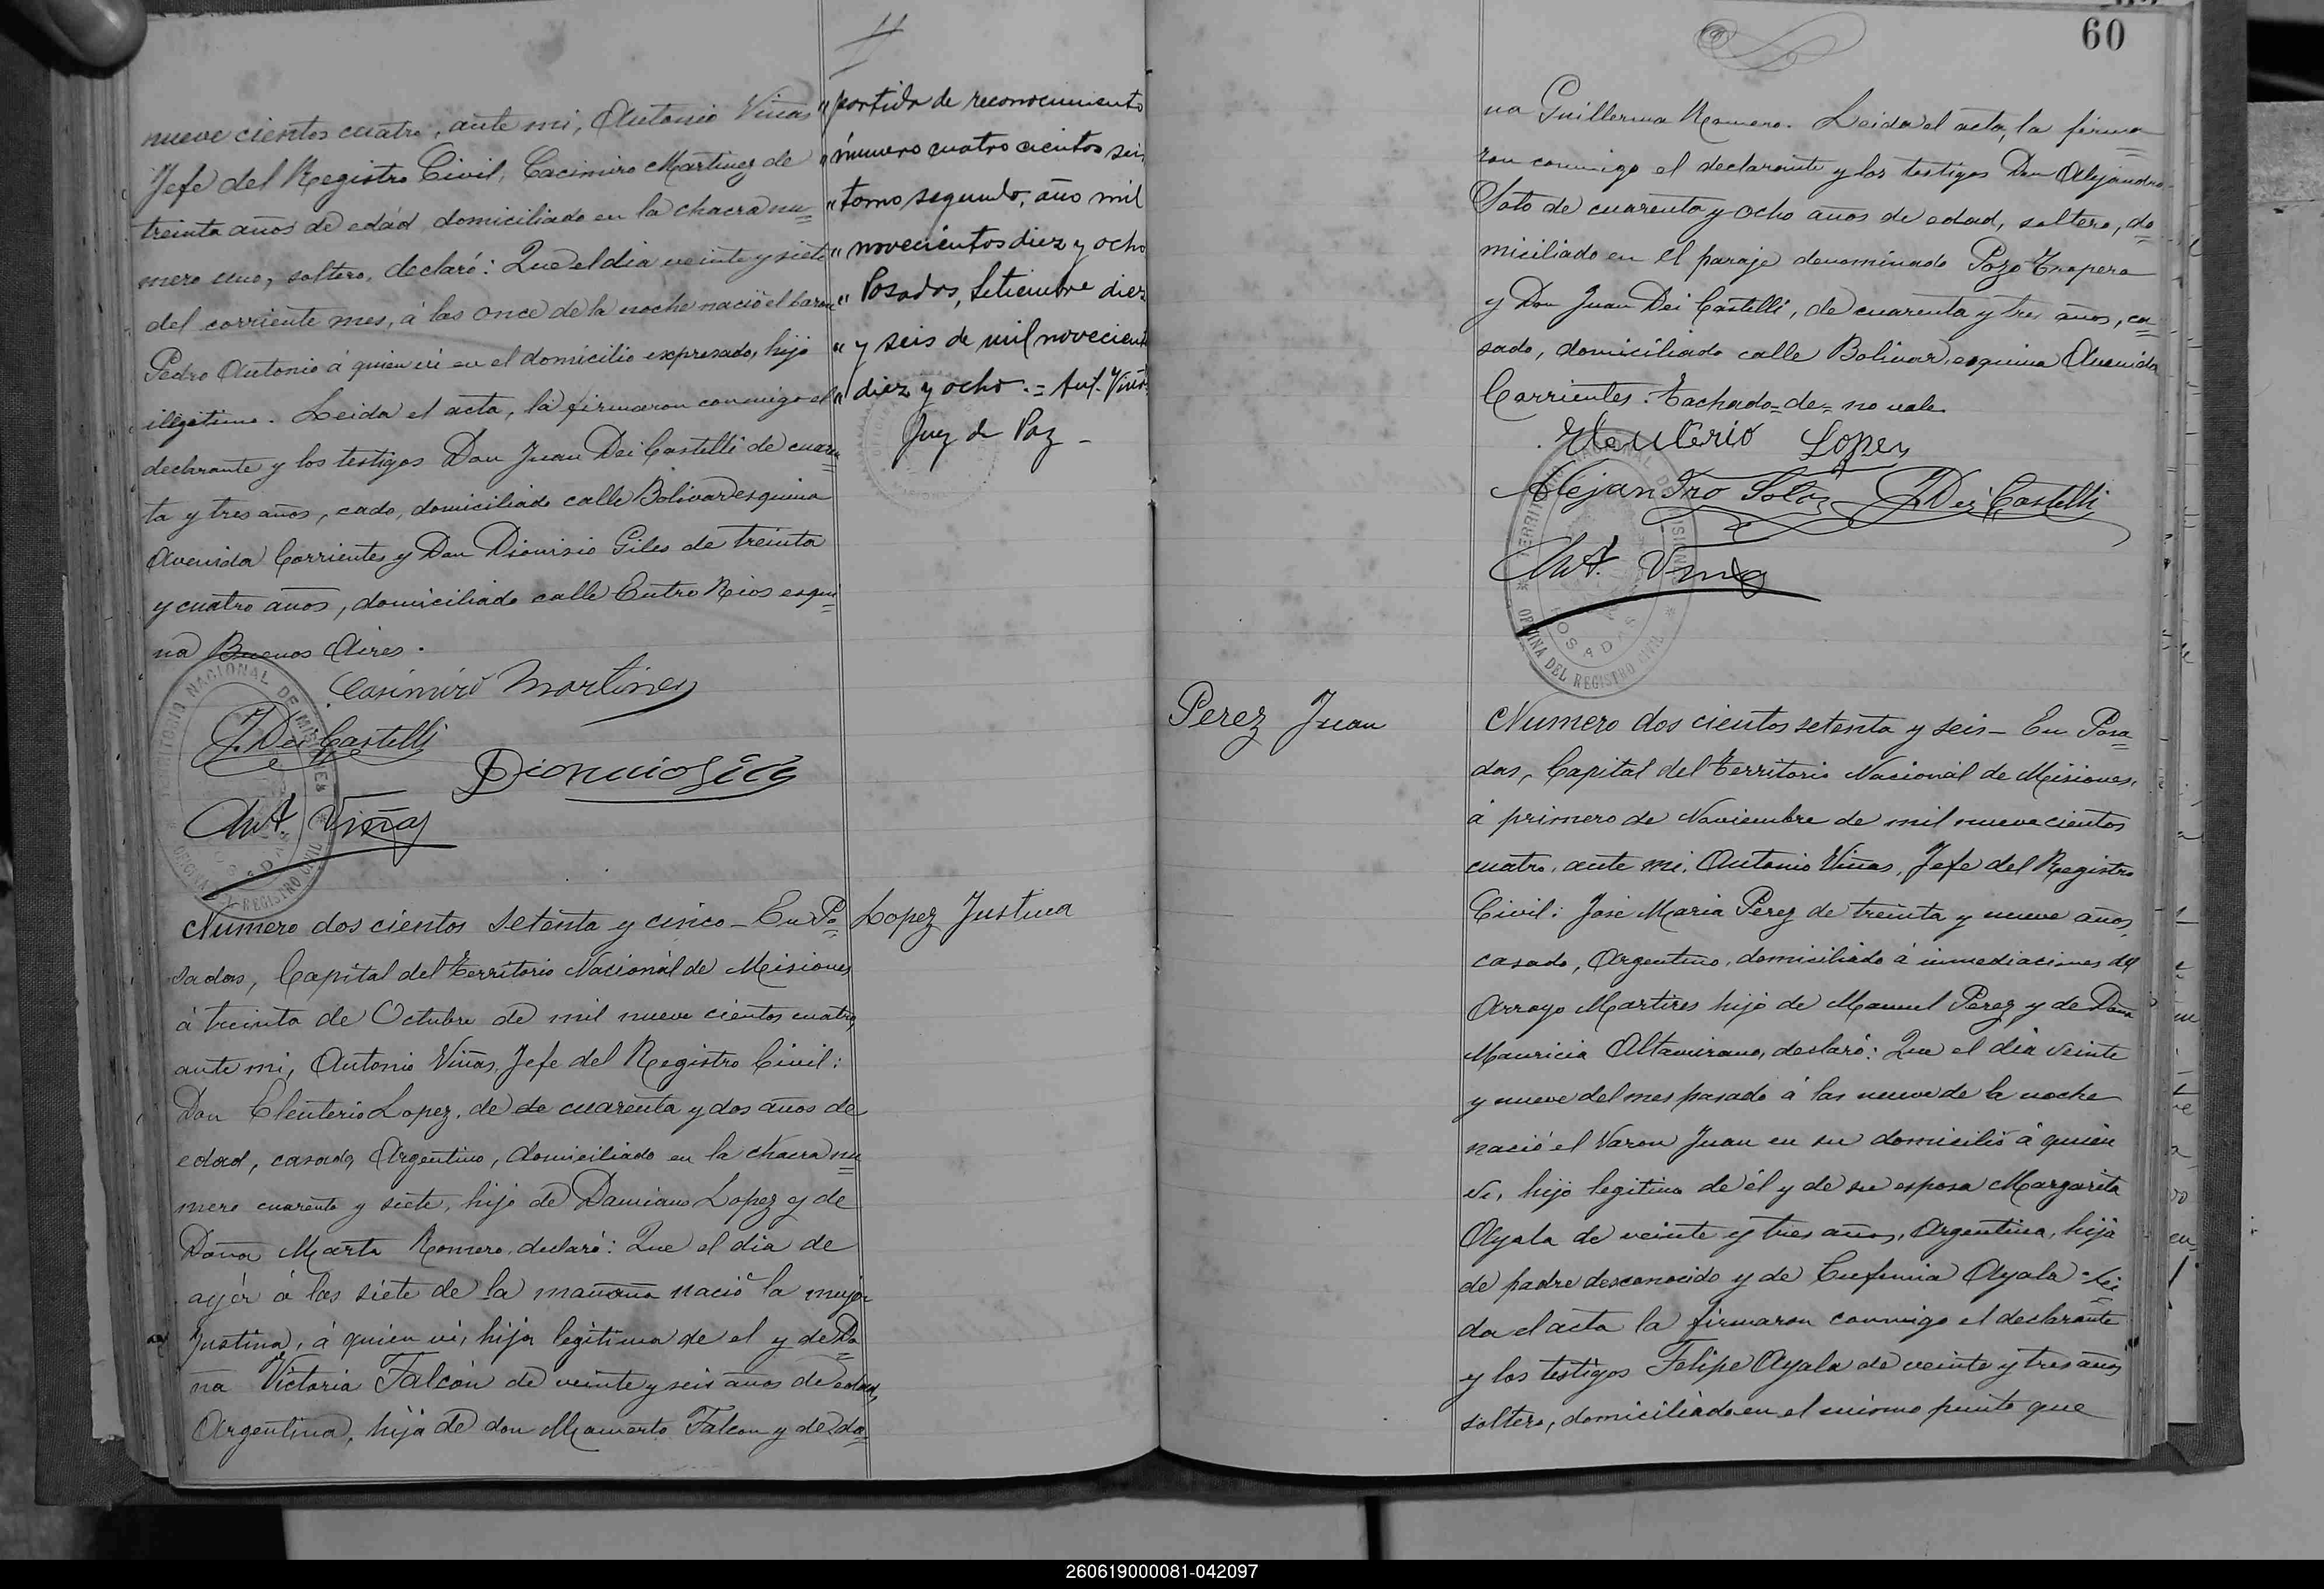 nueve cientos cuatro, ante mi, Antonio Viñas
Jefe del Registro Civil, Cacimiro Martinez de
treinta años de edád, domiciliado en la chacra nu=
mero uno, soltero, declaró: Que el dia veinte y siete
del corriente mes, á las once de la noche nació el baron
Pedro Antonio á quien vi en el domicilio expresado, hijo
illgitimo. Leida el acta, la firmaron conmigo el
declarante y los testigos Don Juan Dei Castelli de cuaren=
ta y tres años, cado, domiciliado calle Bolivar esquina
Avenida Corrientes y Don Dionisio Giles de treinta
y cuatro años, domiciliado calle Entre Rios esqui=
na Buenos Aires.
Casimiro Martinez
J. Dei Castelli
Dionicio Giles
Ant. Viñas
TERRITORIO NACIONAL DE MISIONES
OFICINA DEL REGISTRO CIVIL
POSADAS
"partida de reconocimiento
"número cuatro cientos seis
"tomo segundo, año mil
"novecientos diez y ocho
"Posadas, Setiembre diez
"y seis de mil novecient
"diez y ocho.= Ant. Viñas
Juez de Paz -
Numero dos cientos setenta y cinco - En Po=
Lopez Justina
sadas, Capital del Territorio Nacional de Misiones
á treinta de Octubre de mil nueve cientos cuatro,
ante mi, Antonio Viñas, Jefe del Registro Civil:
Don Eleuterio Lopez, de de cuarenta y dos años de
edad, casado, Argentino, domiciliado en la chacra nu=
mero cuarenta y siete, hijo de Damiano Lopez y de
Doña Marta Romero, declaró: Que el dia de
ayér á las siete de la mañana nació la mujer
Justina, á quien vi, hija legitima de el y de Do=
ña Victoria Falcón de veinte y seis años de edad,
Argentina, hija de don Mamerto Falcon y de do=
60
na Guillerma Romero. Leida el acta, la firma=
ron conmigo el declarante y los testigos Don Alejandro
Soto de cuarenta y ocho años de edad, soltero, do=
miciliado en el paraje denominado Pozo Tropero
y Don Juan Dei Castelli, de cuarenta y tres años, ca=
sado, domiciliado calle Bolivar, esquina Avenida
Corrientes. Tachado=de=no vale.
Eleuterio Lopez
Alejandro Soto
J. Dei Castelli
Ant. Viñas
TERRITORIO NACIONAL DE MISIONES
OFICINA DEL REGISTRO CIVIL
POSADAS
Perez Juan
Numero dos cientos setenta y seis - En Posa=
das, Capital del Territorio Nacional de Misiones,
á primero de Noviembre de mil nueve cientos
cuatro, ante mi, Antonio Viñas, Jefe del Registro
Civil: José Maria Perez de treinta y nueve años,
casado, Argentino, domiciliado á inmediaciones del
Arroyo Martires hijo de Manuel Perez y de Doña
Mauricia Altamirano, declaró: Que el dia veinte
y nueve del mes pasado á las nueve de la noche
nació el Varon Juan en su domicilió á quien
vi, hijo legitimo de él y de su esposa Margarita
Ayala de veinte y tres años, Argentina, hija
de padre desconocido y de Eufemia Ayala. Lei=
da el acta la firmaron conmigo el declarante
y los testigos Felipe Ayala de veinte y tres años
soltero, domiciliado en el mismo punto que
260619000081-042097